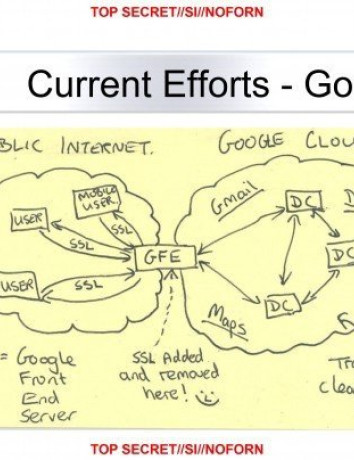 TOP SECRET//SI//NOFORN
Current Efforts - Go
BLIC INTERNET.
GOOGLE CLOU
Gmail
MOBILE
USER
DC
USER
SSL
SSL
GFE
DC
USER
SSL
DC
Maps
= Google
Front
End
Server
SSL Added
and removed
here!
Tra
clea
TOP SECRET//SI//NOFORN